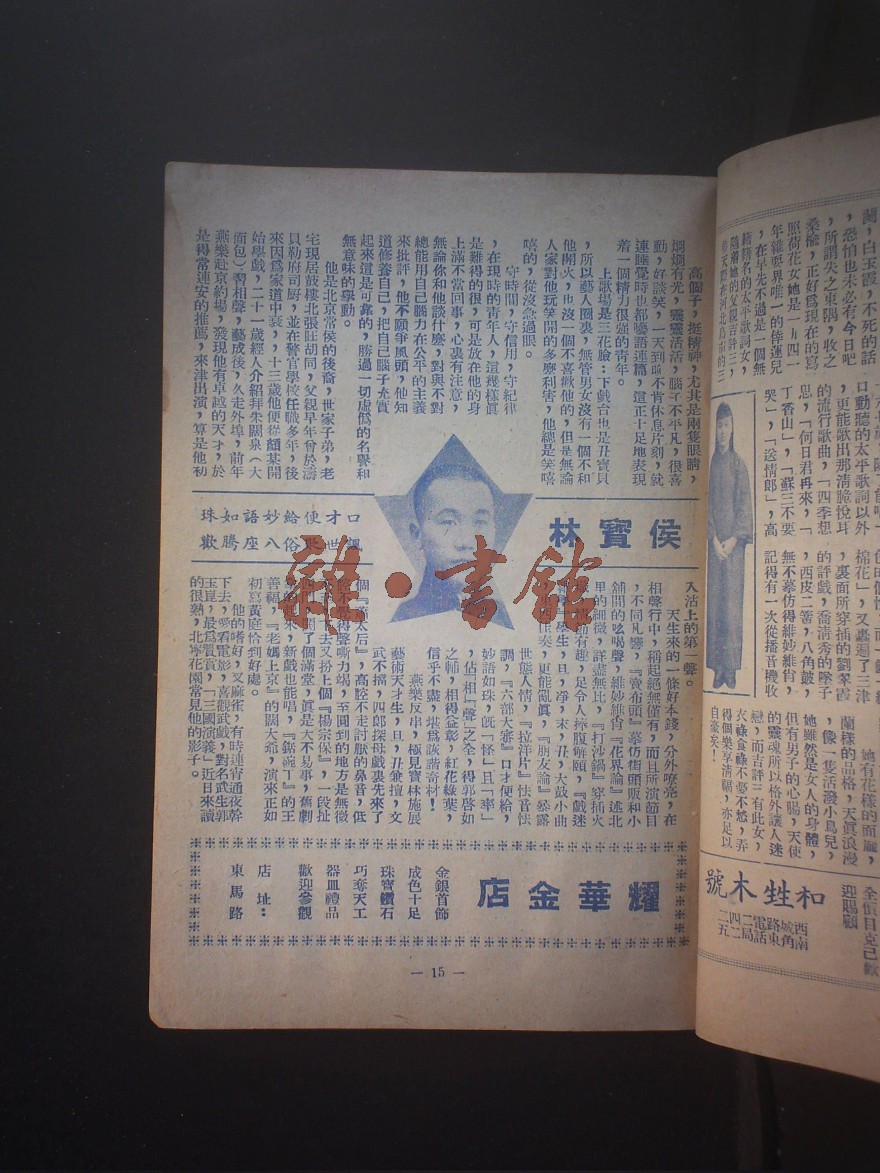 侯寶林
口才便給妙語如珠
諷世聚俗八座騰歡
高個子，挺精神，尤其是兩隻眼睛，
炯炯有光，靈靈活活，腦子不平凡，很喜
動，好談笑，一天到晚不肯休息片刻，就
連睡覺時也都囈語連篇，這正十足地表現
着一個精力很強的青年。
上歌場是三花臉；下戲台也是丑寶貝
，所以藝人圈裏，無管男女沒有一個不和
他開火，也沒一個不喜歡他的，但是無論
人家對他玩笑開的多麼利害，他總是笑嘻
嘻的，從沒急過眼。
守時間，守信用，守紀律
，在現時的青年人，這幾樣真
是難得的很，可是放在他的身
上滿不當回事，心裏有注意，
無論你和他談什麼，對與不對
總能用自己腦力在公平的主義
來批評，他不願爭風頭，他知
道修養自己，把自己腦子充實
起來這是可靠的，勝過一切虛僞的名譽和
無意味的舉動。
他是北京常侯的後裔，世家子弟，老
宅現居鼓樓北張旺胡同，父親早年曾於濤
貝勒府司厨，並在警官學校任職多年，後
來因爲家道中衰，十三歲他便從顏某開
始學戲，二十一歲經人介紹拜朱闊泉（大
面包）習相聲，藝成後，久走外埠，前年
燕樂赴京約場，發現他有卓越的天才，於
是得常連安的推薦，來津出演，算是他初
入沽上的第一聲。
天生來的一條好本錢，分外嘹亮，在
相聲行中，稱起絕無僅有，而且所演節目
，不同凡響，『賣布頭』摹仿街頭販和小
舖間的吆喝聲，維妙維肖『花界論』述北
里的細微，詳盡無比，『打沙鍋』穿插火
足令人捧腹解頤，『戲迷
生，旦，凈，末，丑，大鼓小曲
更能亂眞，『朋友論』暴露
世態人情，『拉洋片』怯音怯
調，『六部大審』口才便給，
妙語如珠，旣「怪」且「率」
，佔「相」「聲」之全，得郭啓如
之輔，相得益彰，紅花綠葉，
信乎不謬，堪爲詼諧奇材！
燕樂反串，極見寶林施展
藝術天才生，旦，丑兼擅，文
武不擋，四郎探母戲裏先來了
個『蕭太后』，高腔不走討厭的鼻音，低
聲嘶力竭，至圓到的地方是無微
下去又扮上個『楊宗保』，一段扯
了個滿堂，眞是大不易事，舊劇
來，新戲也能唱，『鋸碗丁』的王
善福，『老媽上京』的關大爺，演來正如
初寫黃庭恰到好處。
他的嗜好，又麻雀，有時連宵通夜幹
下去，愛看電影，喜觀武戲，對名武生郭
玉崑，最爲賞贊，『三國演義』近日來讀
的很熟，北寧花園常見他的影子。
耀華金店
金銀首飾
成色十足
珠寶鑽石
巧奪天工
器皿禮品
歡迎參觀
店址：
東馬路
— 15 —
蘭，白玉霞，不死的話
，恐怕也未必有今日吧
，所謂失之東隅，收之
桑榆，正好爲現在的寫
照荷花女她是一九四一
年雜耍界唯一的倖運兒
，在早先不過是一個無
籍籍名的太平歌詞女，
隨着她的父親吉評三，
口動聽的太平歌詞以外
，更能歌出那清脆悅耳
的流行歌曲，「四季想
思，「何日君再來，「
丁香山」，「蘇三不要
哭」，「送情郎」，高
棉花」，又轟過了三津
，裏面所穿插的劉翠霞
的評戲，喬清秀的墜子
，西皮二簧，八角鼓，
無不摹仿得維妙維肖，
記得有一次從播音機收
她有花樣的面龐，
蘭樣的品格，天眞浪漫
，像一隻活潑小鳥兒，
她雖然是女人的身體，
但有男子的心腸，天使
的靈魂所以格外讓人迷
戀，而吉評三有此女，
衣祿食祿不憂不愁，弄
得個樂享清福，亦足以
自豪矣！
和牲木號
西南城角
路東電話
二局四二二五
迎賜顧
雜·書館